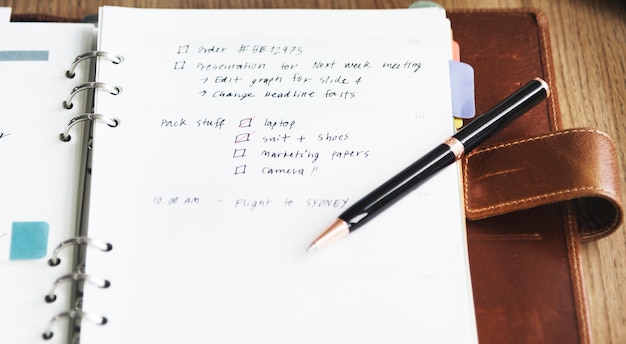 ☐ Order #BE12975
☐ Presentation for Next week meeting
→ Edit graph for slide 4
→ Change Headline fonts
Pack stuff ☐ laptop
☐ suit + shoes
☐ marketing papers
☐ camera !!
10.00 AM - Flight to SYDNEY